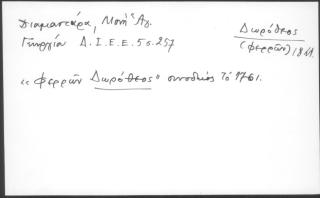 Διαμαντάρα, Μονή Ἁγ.
Γεωργίου Δ.Ι.Ε.Ε. 5 σ. 257
Δωρόθεος
(Φερρῶν) 18
« Φερρῶν Δωρόθεος » συνοδικὸς τὸ 1761.